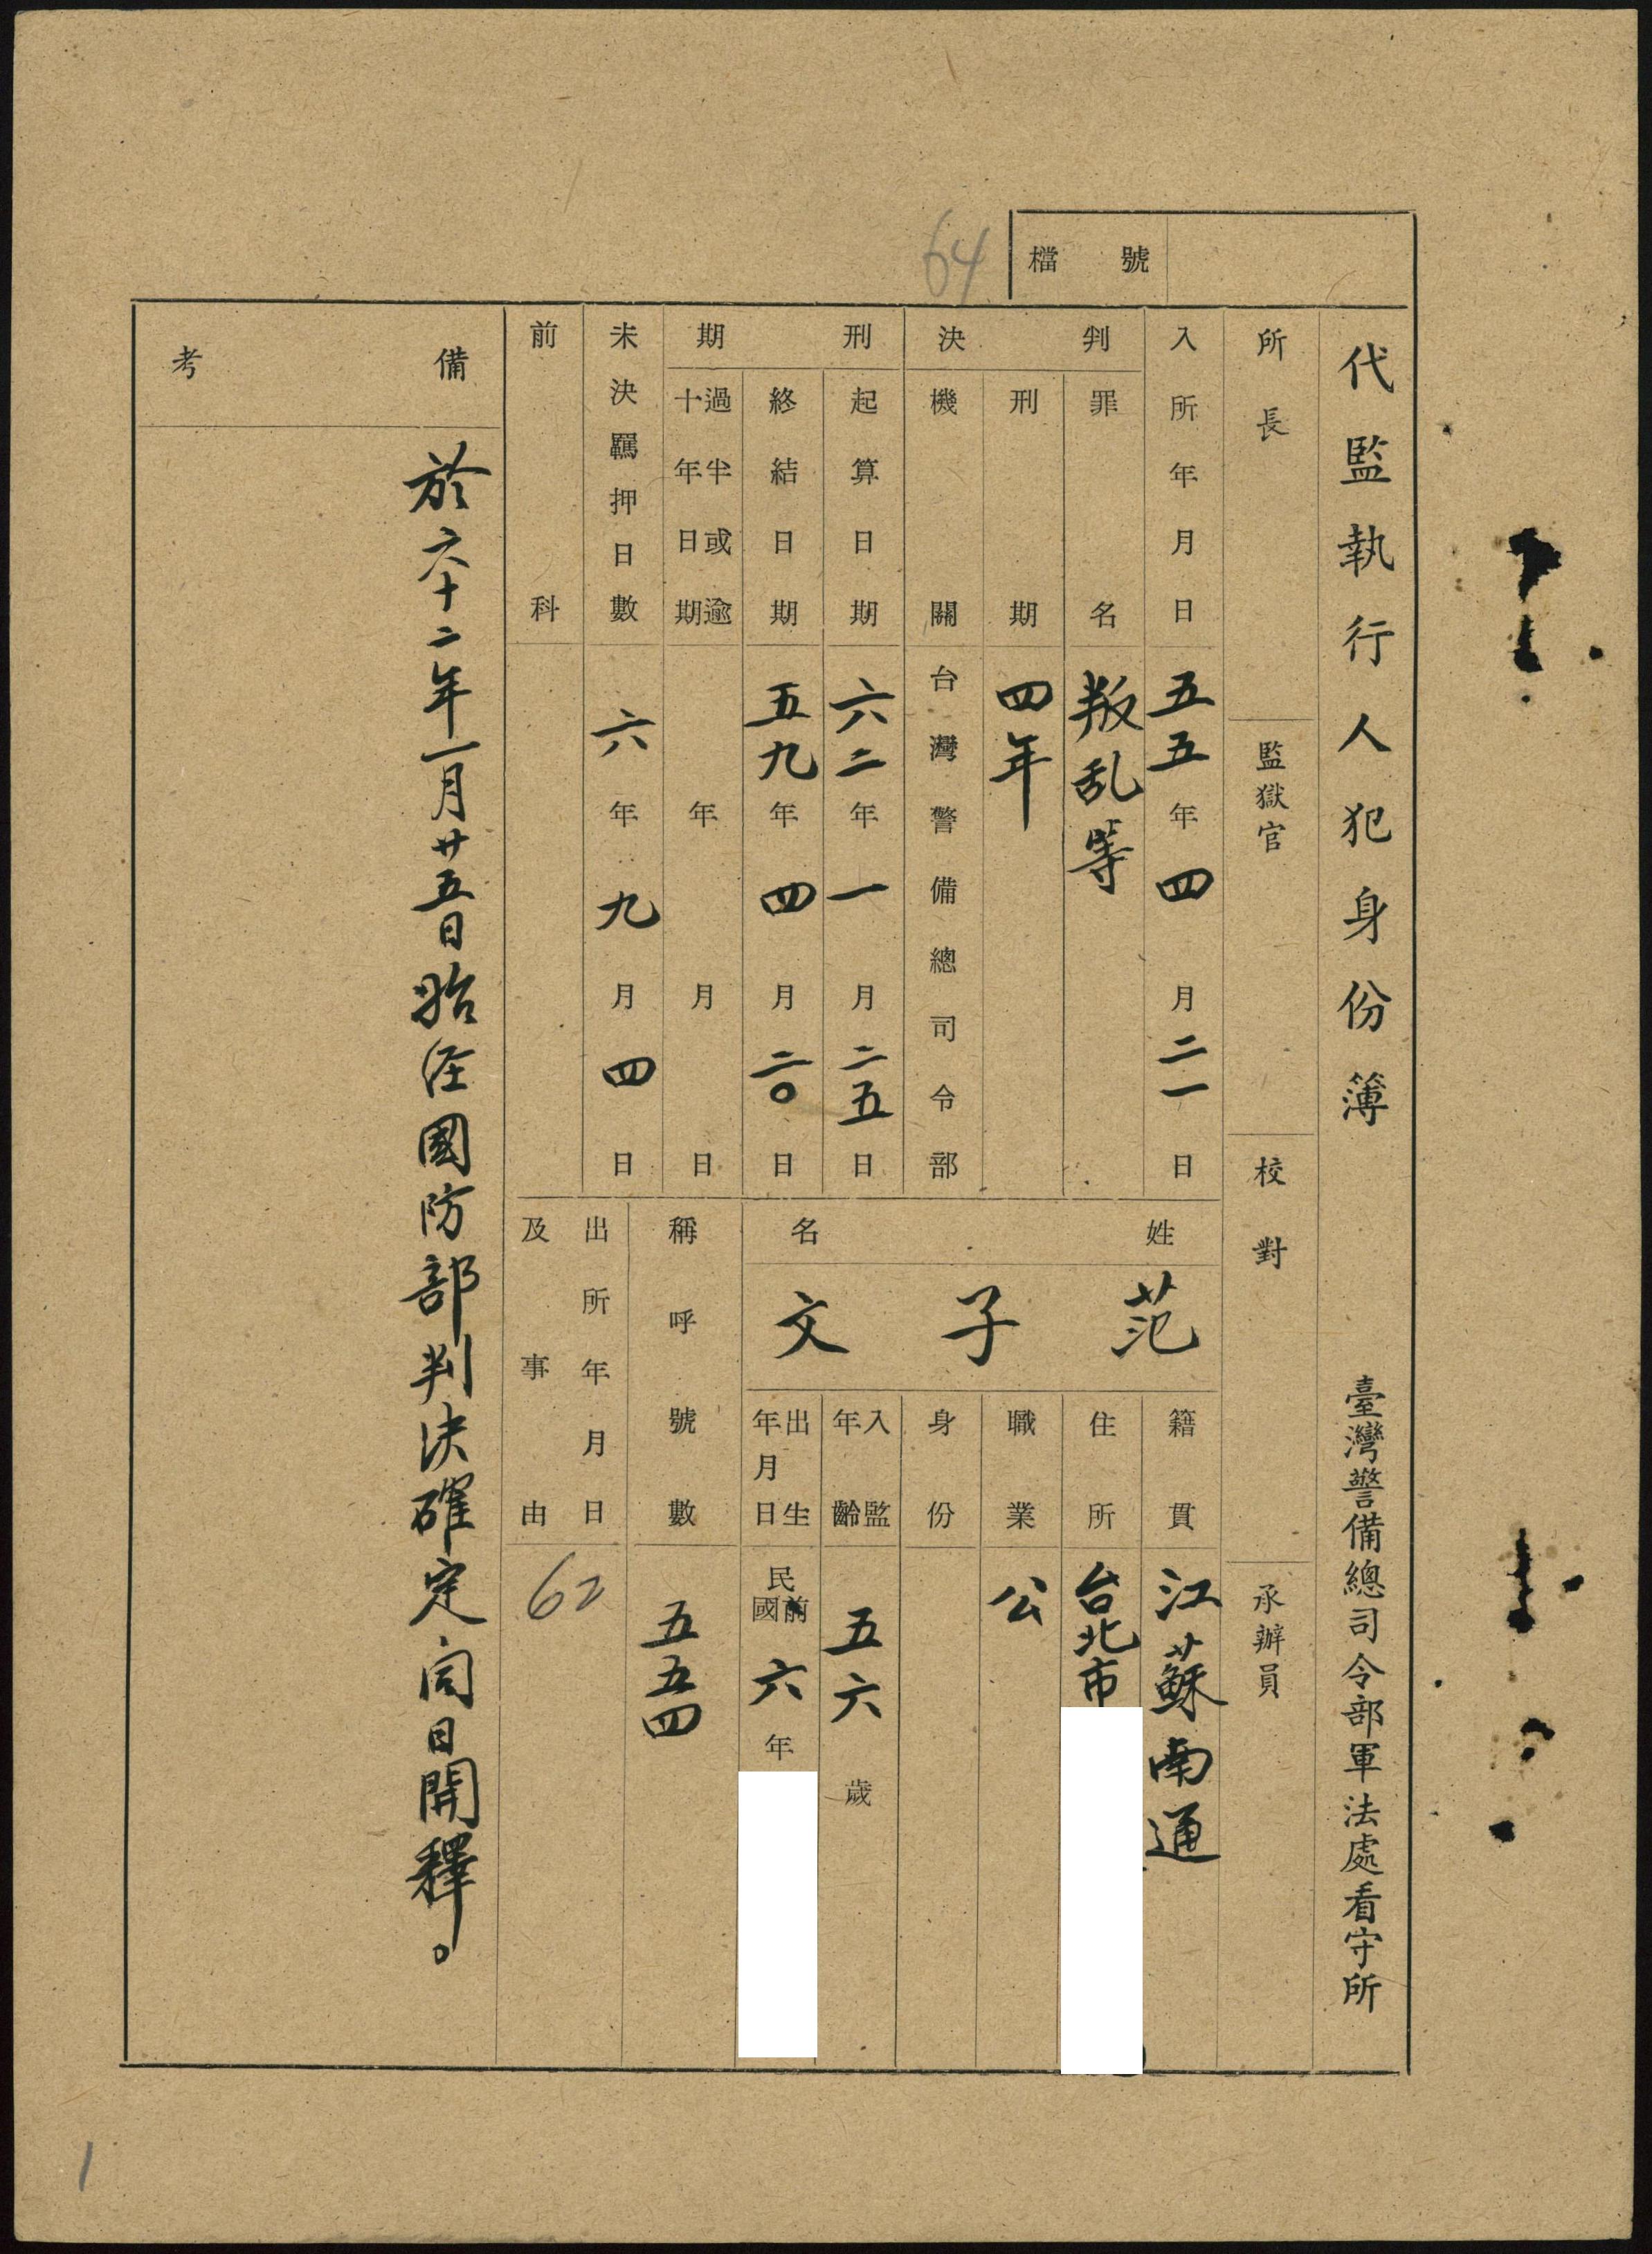 檔號
64
代監執行人犯身份簿 臺灣警備總司令部軍法處看守所
所長 監獄官 校對 承辦員
入所年月日 五五年四月二一日
判決
罪名 叛乱等
刑期 四年
機關 台灣警備總司令部
刑期
起算日期 六二年一月二五日
終結日期 五九年四月二〇日
過半或逾十年日期 年 月 日
未決羈押日數 六年九月四日
前科
姓名
范子文
籍貫 江蘇南通
住所 台北市
職業 公
身份
入監年齡 五六歲
出生年月日 民國前六年
稱呼號數 五五四
出所年月日及事由 62
備考
於六十二年一月廿五日始經國防部判決確定同日開釋。
1